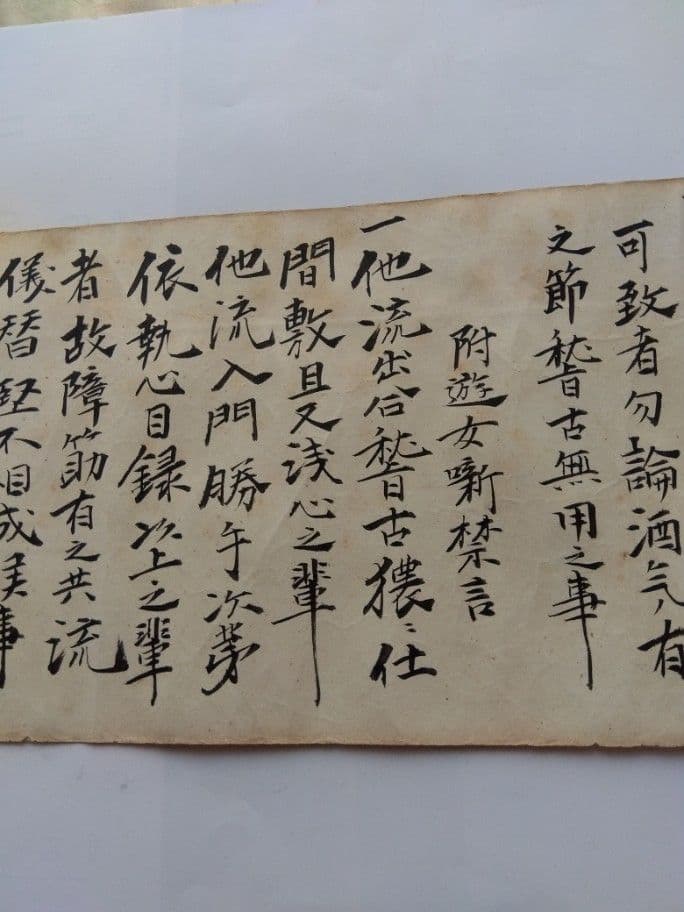 可致者勿論酒気有
之節稽古無用之事
附遊女噺禁言
一他流出合稽古猥ミ仕
間敷且又浅心之輩
他流入門勝手次第
依執心目録以上之輩
者故障筋有之共流
儀替堅不相成候事